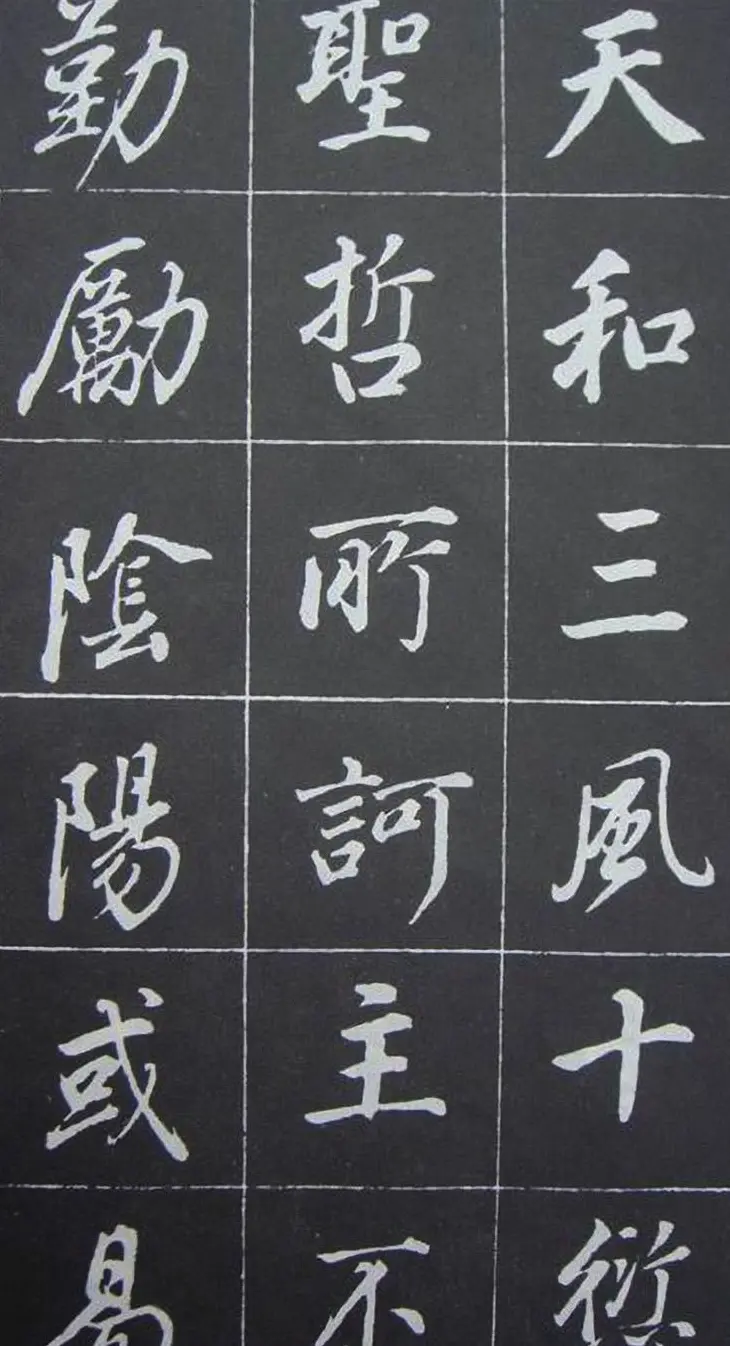 天和三風十愆
聖哲所訶主不
勤勵陰陽或易